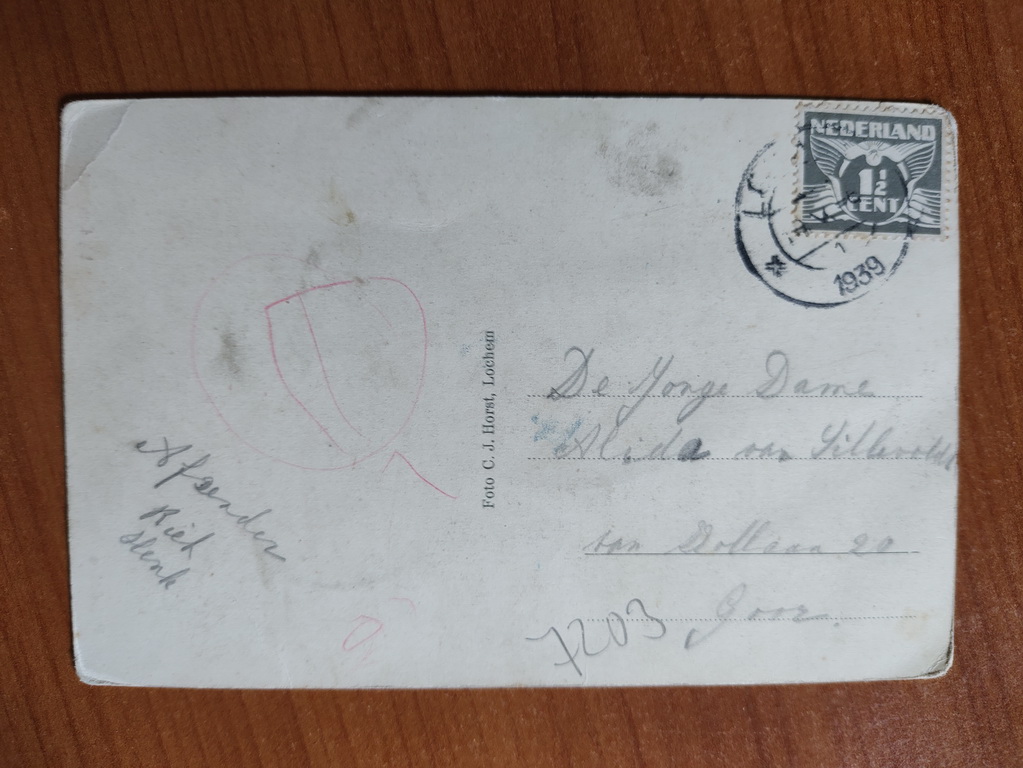 NEDERLAND
1½
CENT
1939
Foto C. J. Horst, Lochem
De Jonge Dame
Alida van
van 20
Goor.
7203
Afzender
Riet
Henk